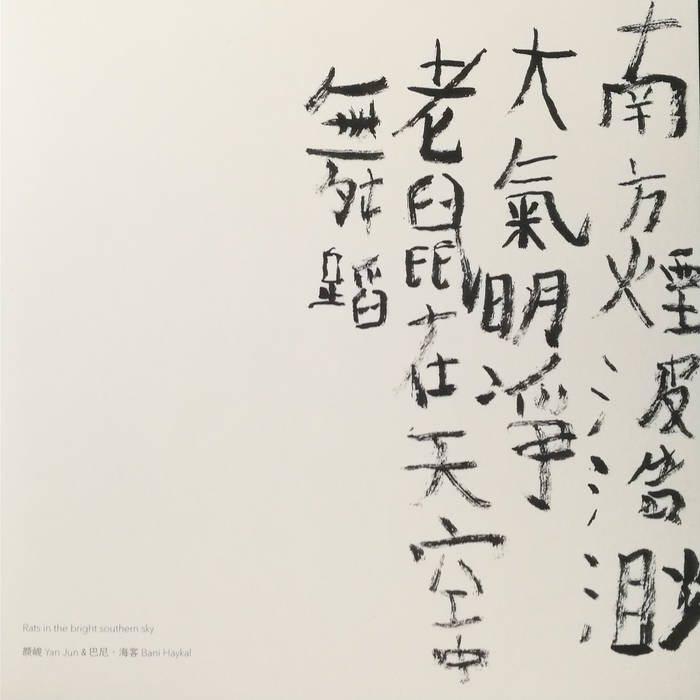 南方煙波浩渺
大氣明凈
老鼠在天空中
舞蹈
Rats in the bright southern sky
顏峻 Yan Jun & 巴尼・海客 Bani Haykal